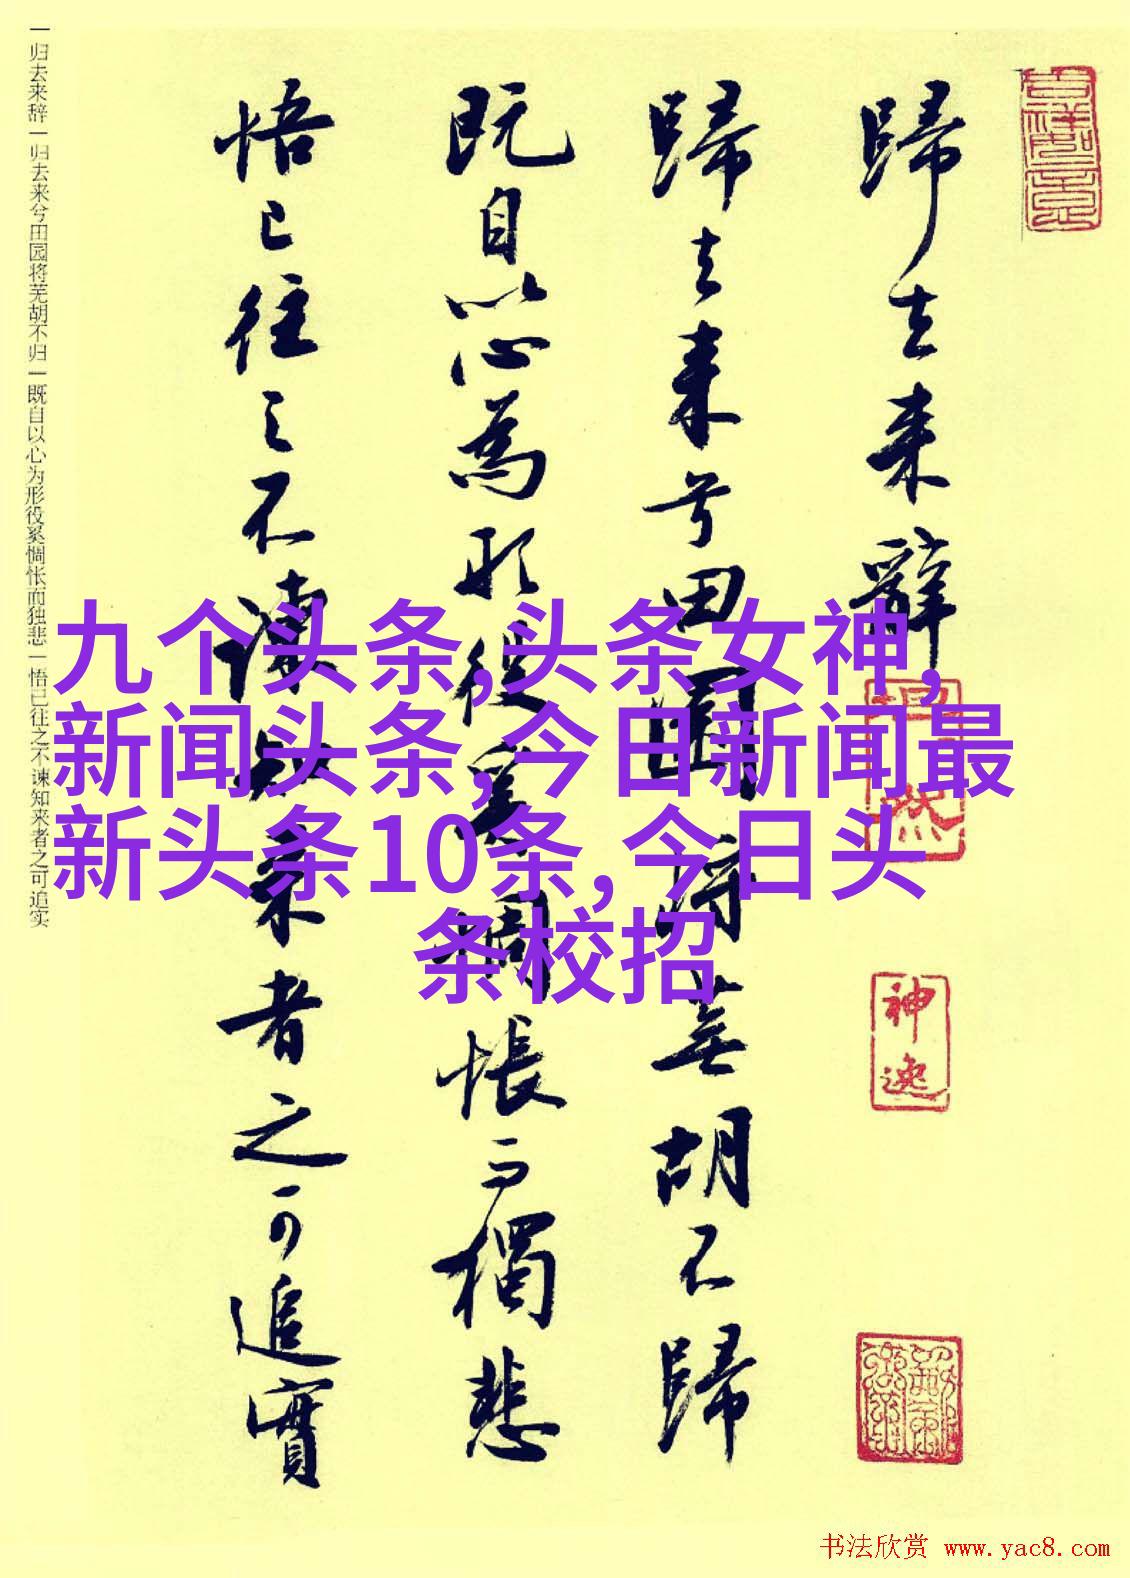 吉祥如意
歸去来辭
神逸
歸去来兮田園将蕪胡不歸
既自以心為形役奚惆悵而獨悲
悟已往之不諫知来者之可追實
一归去来辞一归去来兮田园将芜胡不归一既自以心为形役奚惆怅而独悲一悟已往之不谏知来者之可追实
九个头条,头条女神,
新闻头条,今日新闻最
新头条10条,今日头
条校招
书法欣赏 www.yac8.com